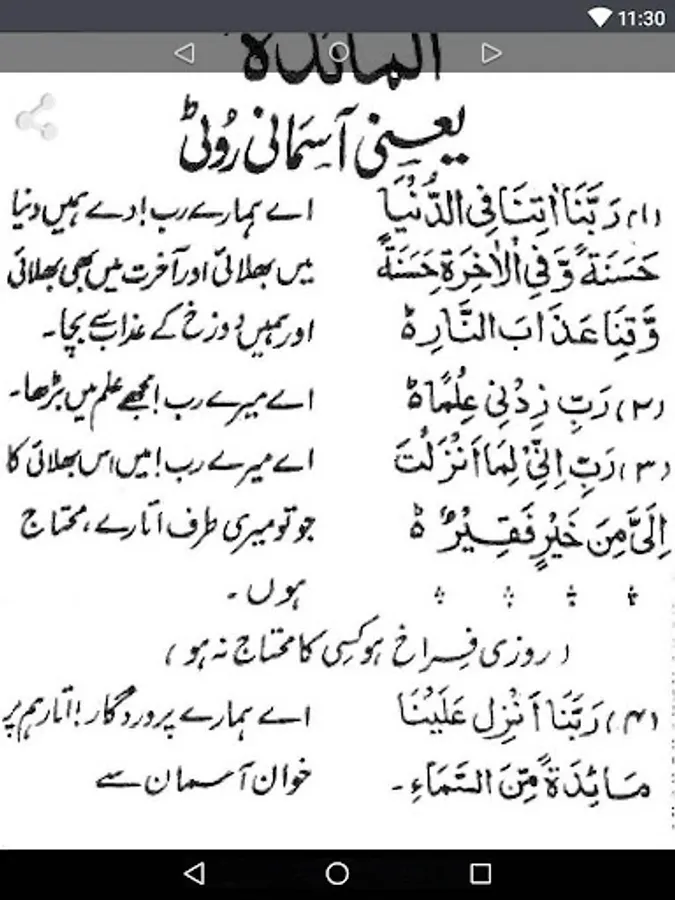 11:30
المائدة
یعنی آسمانی روٹی
(۱) رَبَّنَا اٰتِنَا فِی الدُّنْیَا اے ہمارے رب! دے ہمیں دنیا
حَسَنَةً وَّفِی الْاٰخِرَةِ حَسَنَةً میں بھلائی اور آخرت میں بھی بھلائی
وَّقِنَا عَذَابَ النَّارِ ہ اور ہمیں دوزخ کے عذاب سے بچا۔
(۲) رَبِّ زِدْنِی عِلْمًا ہ اے میرے رب! مجھے علم میں بڑھا۔
(۳) رَبِّ اِنِّیْ لِمَا اَنْزَلْتَ اے میرے رب! میں اس بھلائی کا
اِلَیَّ مِنَ خَیْرٍ فَقِیْرٌ ہ جو تو میری طرف اتارے، محتاج
ہوں۔
(روزی فراخ ہو کسی کا محتاج نہ ہو)
(۴) رَبَّنَا اَنْزِل عَلَیْنَا اے ہمارے پروردگار! اتار ہم پر
مَائِدَةً مِّنَ السَّمَاءِ۔ خوان آسمان سے